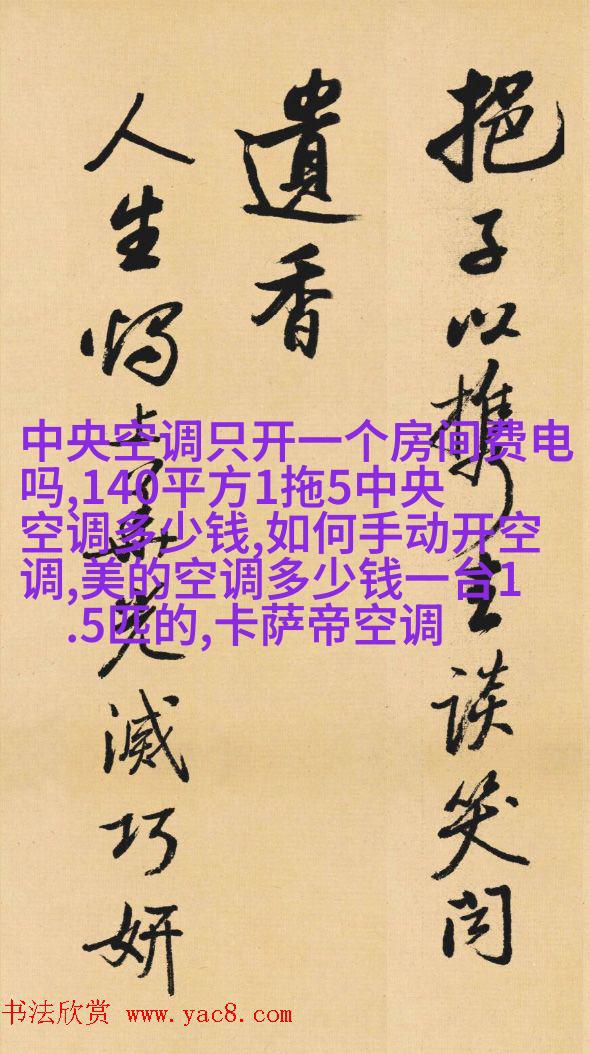 挹子以攜主談笑闻
遺香
人生滅巧妍
中央空调只开一个房间费电
吗,140平方1拖5中央
空调多少钱,如何手动开空
调,美的空调多少钱一台1
.5匹的,卡萨帝空调
书法欣赏 www.yac8.com